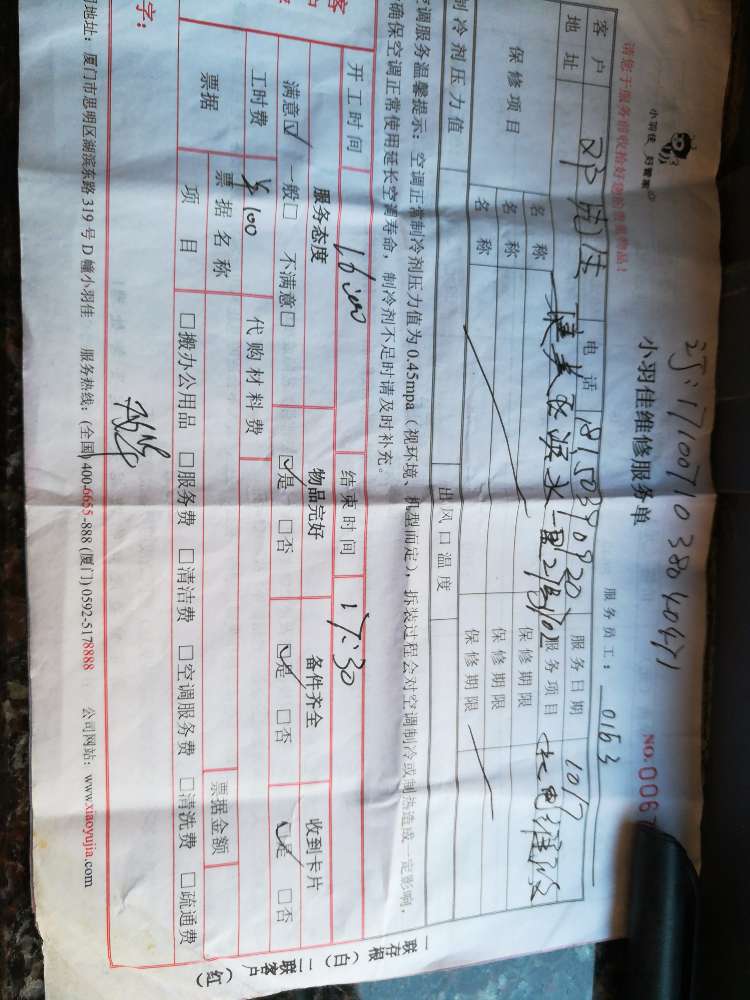 订:17100710380 40471
小羽佳 好管家
小羽佳维修服务单
NO.006
请您于服务前收拾好您的贵重物品!
服务员工: 0163
客户 电话 服务日期 1017
地址 服务项目 水电维修
保修项目 名称 保修期限
名称 保修期限
名称 保修期限
制冷剂压力值 出风口温度
空调服务温馨提示: 空调正常制冷剂压力值为 0.45mpa(视环境、机型而定),拆装过程会对空调制冷或制热造成一定影响,
确保空调正常使用延长空调寿命,制冷剂不足时请及时补充。
开工时间 16:00 结束时间 17:30
服务态度 物品完好 备件齐全 收到卡片
满意☑ 一般□ 不满意□ ☑是 □否 ☑是 □否 ☑是 □否
工时费 ¥100 代购材料费
票据 票据名称 票据金额
项目 □搬办公用品 □服务费 □清洁费 □空调服务费 □清洗费 □疏通费
字:
司地址: 厦门市思明区湖滨东路 319 号 D 幢小羽佳 服务热线: (全国) 400-6655-888 (厦门) 0592-5178888 公司网站: www.xiaoyujia.com
一联存根(白) 二联客户(红)